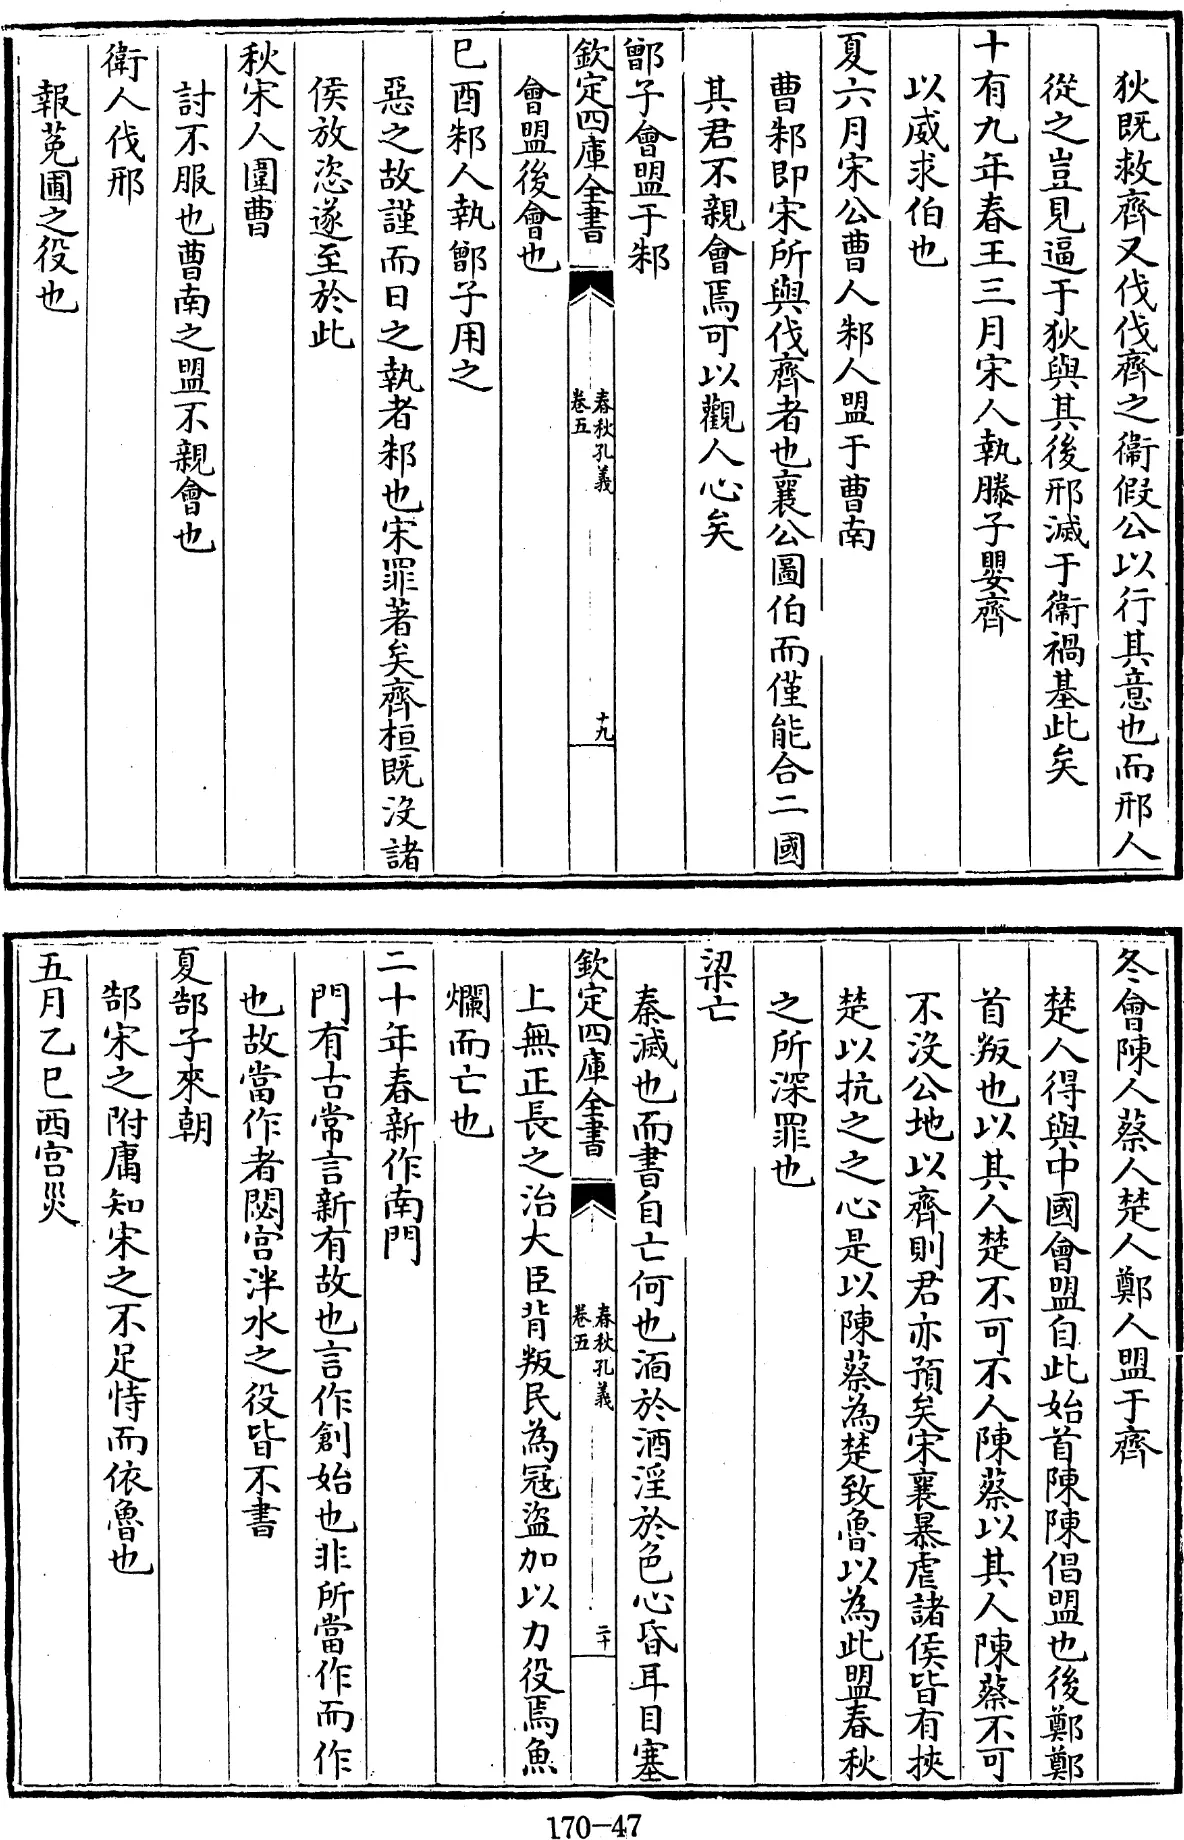 狄既救齊又伐伐齊之衞假公以行其意也而邢人
從之豈見逼于狄與其後邢滅于衞禍基此矣
十有九年春王三月宋人執滕子嬰齊
以威求伯也
夏六月宋公曹人邾人盟于曹南
曹邾即宋所與伐齊者也襄公圖伯而僅能合二國
其君不親會焉可以觀人心矣
鄫子會盟于邾
欽定四庫全書
春秋孔義
卷五
十九
會盟後會也
已酉邾人執鄫子用之
惡之故謹而日之執者邾也宋罪著矣齊桓既没諸
侯放恣遂至於此
秋宋人圍曹
討不服也曹南之盟不親會也
衛人伐邢
報莵圃之役也
冬會陳人蔡人楚人鄭人盟于齊
楚人得與中國會盟自此始首陳陳倡盟也後鄭鄭
首叛也以其人楚不可不人陳蔡以其人陳蔡不可
不没公地以齊則君亦預矣宋襄暴虐諸侯皆有挾
楚以抗之之心是以陳蔡為楚致魯以為此盟春秋
之所深罪也
梁亡
秦滅也而書自亡何也湎於酒淫於色心昏耳目塞
欽定四庫全書
春秋孔義
卷五
二十
上無正長之治大臣背叛民為冦盜加以力役焉魚
爛而亡也
二十年春新作南門
門有古常言新有故也言作創始也非所當作而作
也故當作者閟宫泮水之役皆不書
夏郜子來朝
郜宋之附庸知宋之不足恃而依魯也
五月乙巳西宫災
170-47